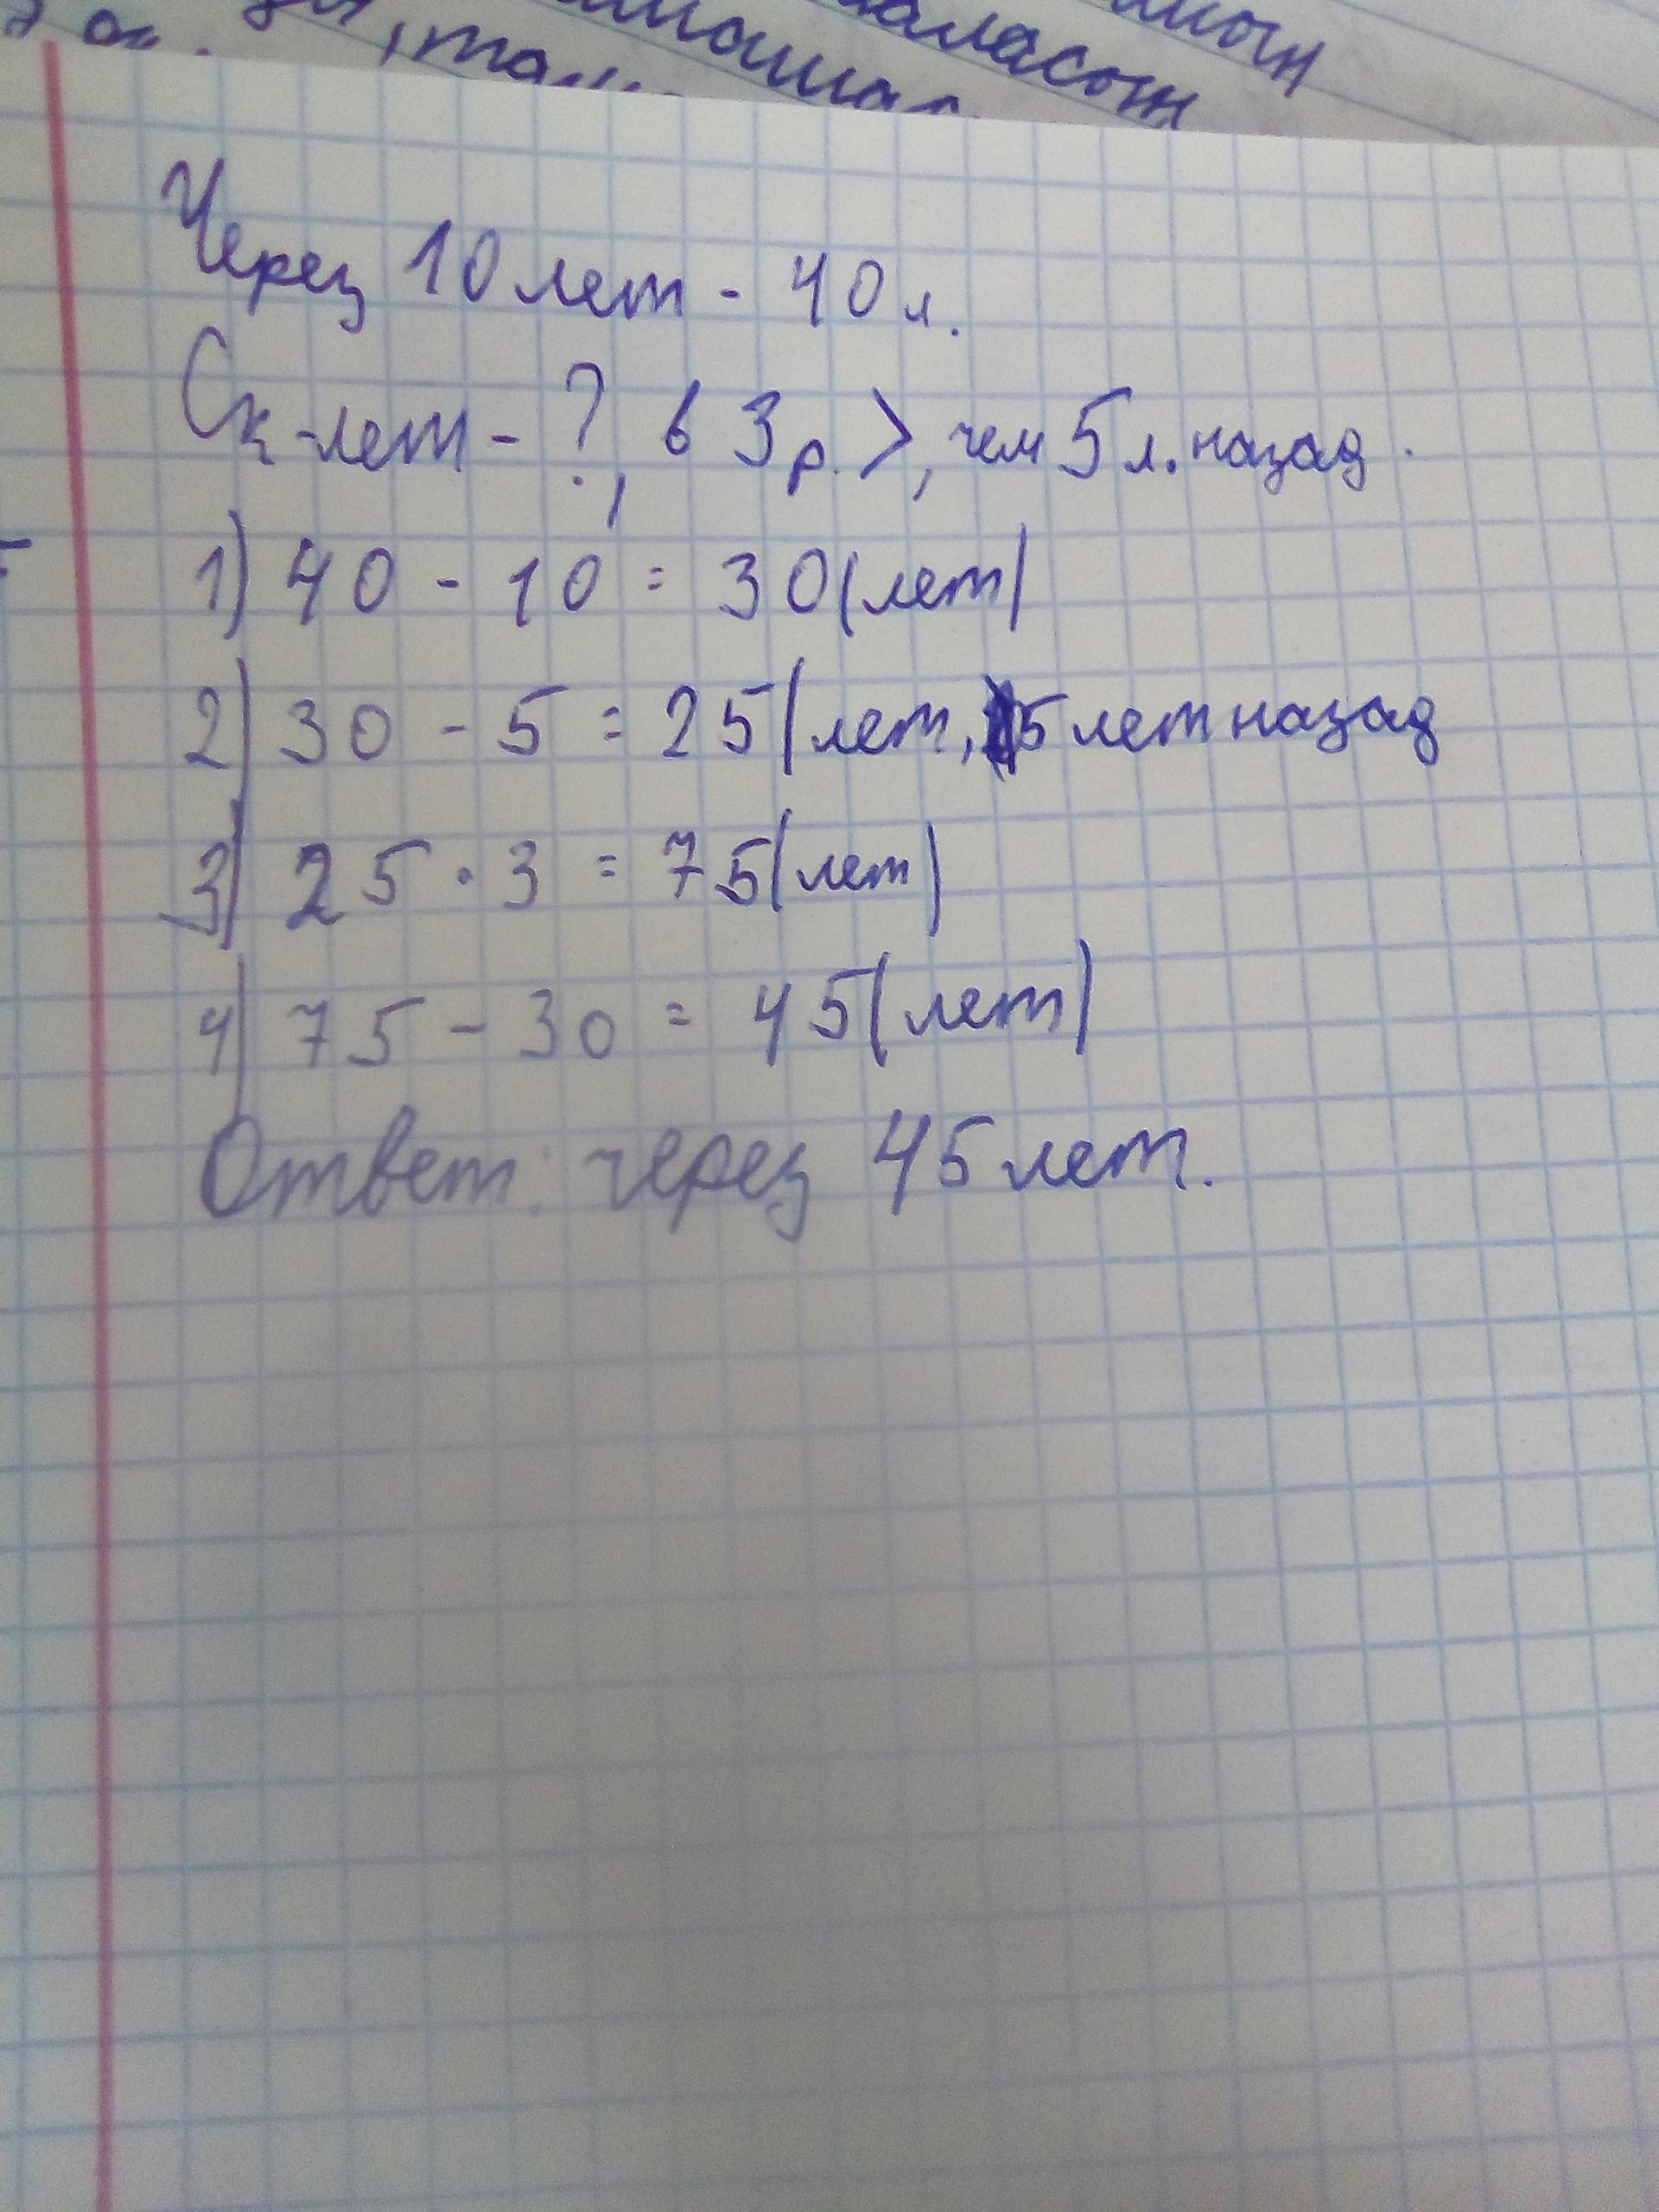 маласын
Через 10 лет - 40 л.
Ск-лет - ?, в 3 р. >, чем 5 л. назад.
1) 40 - 10 = 30 (лет)
2) 30 - 5 = 25 (лет, 5 лет назад
3) 25 · 3 = 75 (лет)
4) 75 - 30 = 45 (лет)
Ответ: через 45 лет.